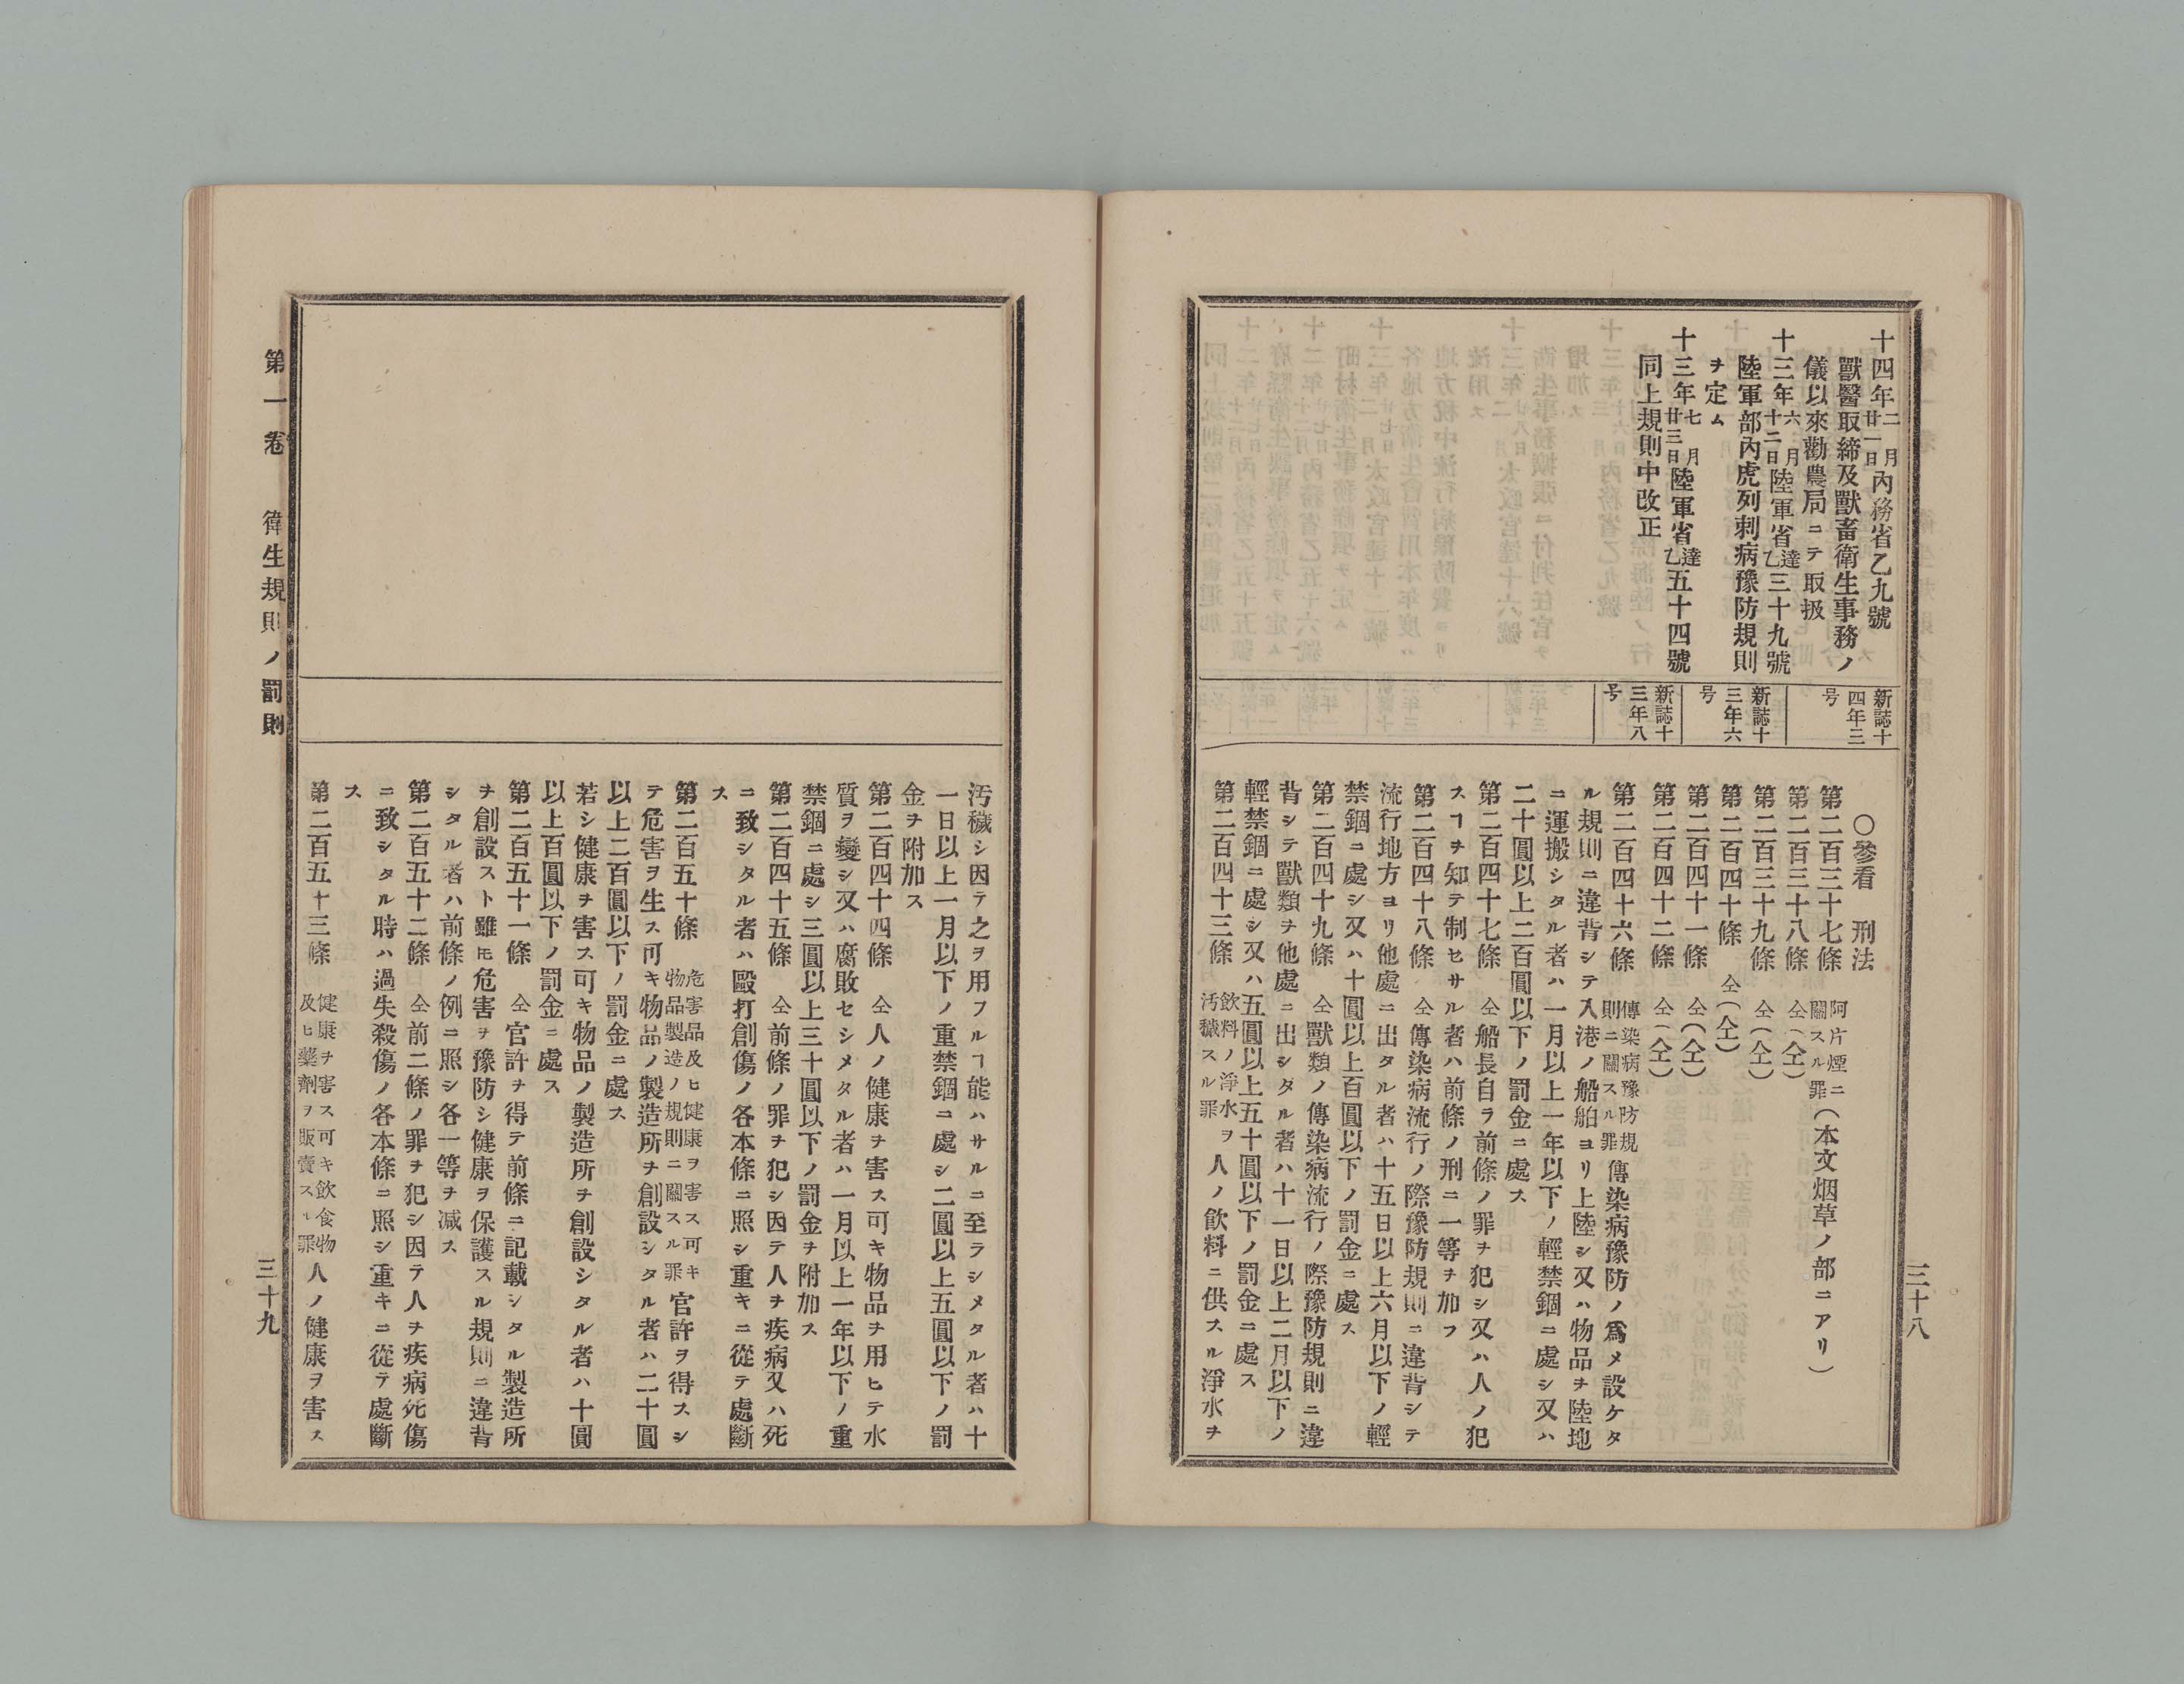 十四年二月廿一日內務省乙九號
獸醫取締及獸畜衛生事務ノ
儀以來勸農局ニテ取扱
十三年六月十二日陸軍省達乙三十九號
陸軍部內虎列刺病豫防規則
ヲ定ム
十三年七月廿三日陸軍省達乙五十四號
同上規則中改正
新誌十
四年三
号
新誌十
三年六
号
新誌十
三年八
号
〇參看 刑法
第二百三十七條 阿片煙ニ關スル罪(本文烟草ノ部ニアリ)
第二百三十八條 仝(仝)
第二百三十九條 仝(仝)
第二百四十條 仝(仝)
第二百四十一條 仝(仝)
第二百四十二條 仝(仝)
第二百四十六條 傳染病豫防規則ニ關スル罪 傳染病豫防ノ爲メ設ケタ
ル規則ニ違背シテ入港ノ船舶ヨリ上陸シ又ハ物品ヲ陸地
ニ運搬シタル者ハ一月以上一年以下ノ輕禁錮ニ處シ又ハ
二十圓以上二百圓以下ノ罰金ニ處ス
第二百四十七條 仝船長自ラ前條ノ罪ヲ犯シ又ハ人ノ犯
スヿヲ知テ制セサル者ハ前條ノ刑ニ一等ヲ加フ
第二百四十八條 仝傳染病流行ノ際豫防規則ニ違背シテ
流行地方ヨリ他處ニ出タル者ハ十五日以上六月以下ノ輕
禁錮ニ處シ又ハ十圓以上百圓以下ノ罰金ニ處ス
第二百四十九條 仝獸類ノ傳染病流行ノ際豫防規則ニ違
背シテ獸類ヲ他處ニ出シタル者ハ十一日以上二月以下ノ
輕禁錮ニ處シ又ハ五圓以上五十圓以下ノ罰金ニ處ス
第二百四十三條 飮料ノ淨水ヲ汚穢スル罪 人ノ飮料ニ供スル淨水ヲ
三十八
汚穢シ因テ之ヲ用フルヿ能ハサルニ至ラシメタル者ハ十
一日以上一月以下ノ重禁錮ニ處シ二圓以上五圓以下ノ罰
金ヲ附加ス
第二百四十四條 仝人ノ健康ヲ害ス可キ物品ヲ用ヒテ水
質ヲ變シ又ハ腐敗セシメタル者ハ一月以上一年以下ノ重
禁錮ニ處シ三圓以上三十圓以下ノ罰金ヲ附加ス
第二百四十五條 仝前條ノ罪ヲ犯シ因テ人ヲ疾病又ハ死
ニ致シタル者ハ毆打創傷ノ各本條ニ照シ重キニ從テ處斷
ス
第二百五十條 危害品及ヒ健康ヲ害ス可キ物品製造ノ規則ニ關スル罪 官許ヲ得スシ
テ危害ヲ生ス可キ物品ノ製造所ヲ創設シタル者ハ二十圓
以上二百圓以下ノ罰金ニ處ス
若シ健康ヲ害ス可キ物品ノ製造所ヲ創設シタル者ハ十圓
以上百圓以下ノ罰金ニ處ス
第二百五十一條 仝官許ヲ得テ前條ニ記載シタル製造所
ヲ創設スト雖𪜈危害ヲ豫防シ健康ヲ保護スル規則ニ違背
シタル者ハ前條ノ例ニ照シ各一等ヲ減ス
第二百五十二條 仝前二條ノ罪ヲ犯シ因テ人ヲ疾病死傷
ニ致シタル時ハ過失殺傷ノ各本條ニ照シ重キニ從テ處斷
ス
第二百五十三條 健康ヲ害ス可キ飮食物及ヒ藥劑ヲ販賣スル罪 人ノ健康ヲ害ス
第一卷 衛生規則ノ罰則
三十九